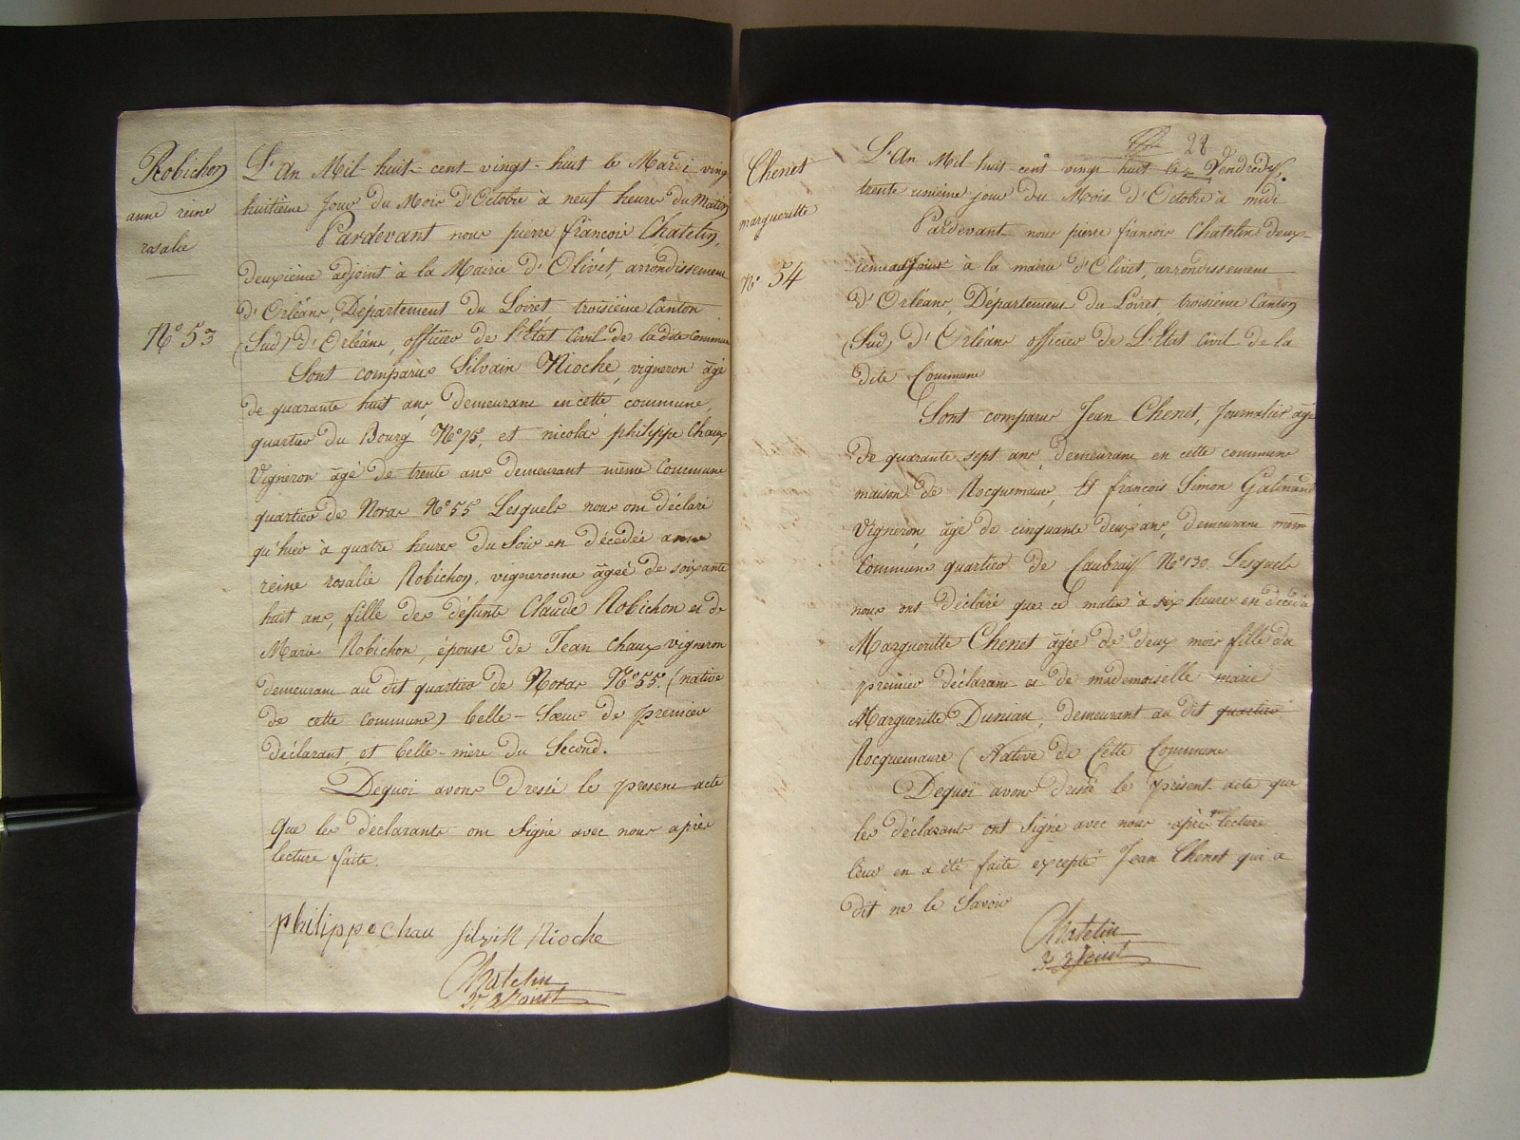 Robichon
anne reine
rosalie
N° 53
L'An Mil-huit-cent-vingt-huit le Mardi vingt
huitième Jour du Mois d'Octobre à neuf heures du Matin
Pardevant nous pierre françois Chatelin,
deuxième adjoint à la Mairie d'Olivet, arrondissement
d'Orléans, Département du Loiret, troisième Canton
(Sud) d'Orléans, officier de l'État Civil de la dite Commune
Sont comparus Silvain Rioche, vigneron âgé
de quarante huit ans, demeurant en cette commune,
quartier du Bourg N° 75, et nicolas philippe Chaux
Vigneron âgé de trente ans demeurant même Commune
quartier de Noras N° 55 Lesquels nous ont déclaré
qu'hier à quatre heures du Soir en décédée anne
reine rosalie Robichon, vigneronne âgée de soixante
huit ans, fille des défunts Claude Robichon et de
Marie Robichon, épouse de Jean Chaux vigneron
demeurant au dit quartier de Noras N° 55. (native
de cette commune) belle-Sœur du premier
déclarant, et belle-mère du Second.
Dequoi avons dressé le present acte
Que les déclarants ont Signé avec nous après
lecture faite.
philippe chau silvin Rioche
Chatelin
2e adjoint
28
Chenet
margueritte
N° 54
L'An Mil huit cent vingt huit le Vendredy
trente unième jour du Mois d'Octobre à midi
Pardevant nous pierre françois Chatelin deux-
ième adjoint à la mairie d'Olivet, arrondissement
d'Orléans, Département du Loiret, troisième Canton
(Sud) d'Orléans officier de L'État Civil de la
dite Commune
Sont comparus Jean Chenet, Journalier âgé
de quarante sept ans, demeurant en cette commune
maison de Rocquemaure, Et françois Simon Galinand
Vigneron, âgé de cinquante deux ans, demeurant même
Commune quartier de Caubray N° 130 Lesquels
nous ont déclaré que ce matin à six heures en décédée
Margueritte Chenet âgée de deux mois fille du
premier déclarant et de mademoiselle marie
Margueritte Duniau, demeurant au dit quartier
Rocquemaure (Native de Cette Commune
Dequoi avons dressé le présent acte que
les déclarants ont Signé avec nous après lecture
leur en a été faite excepté Jean Chenet qui a
dit ne le Savoir
Chatelin
2e adjoint